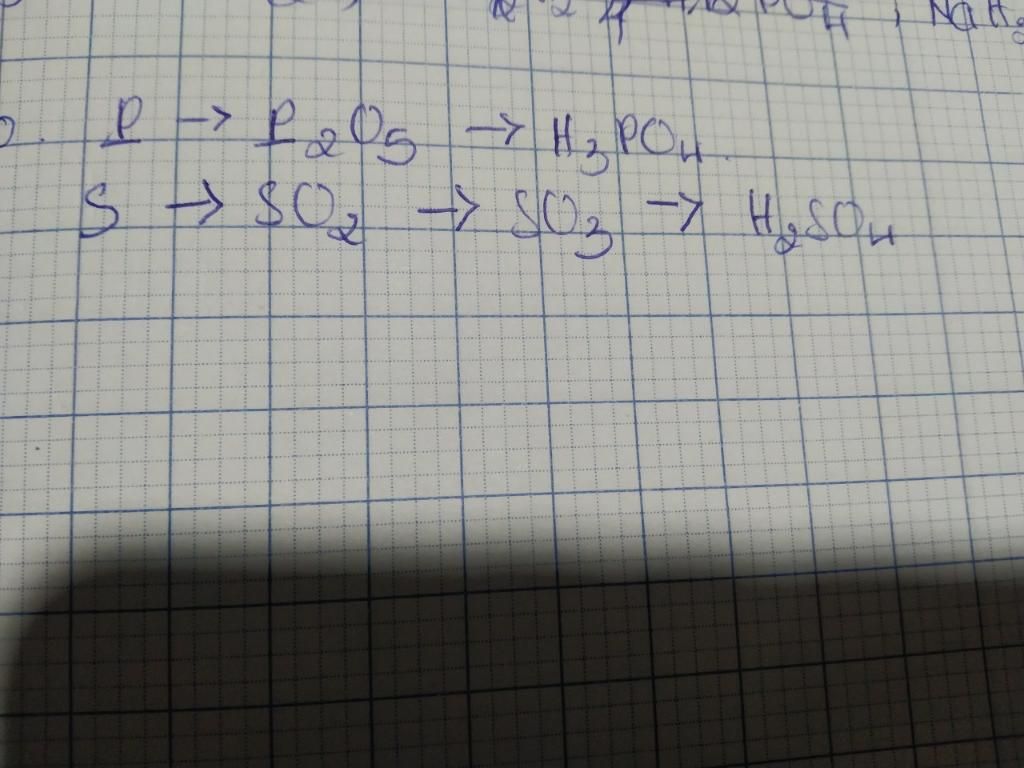 PO4, NaH2
P → P2O5 → H3PO4.
S → SO2 → SO3 → H2SO4